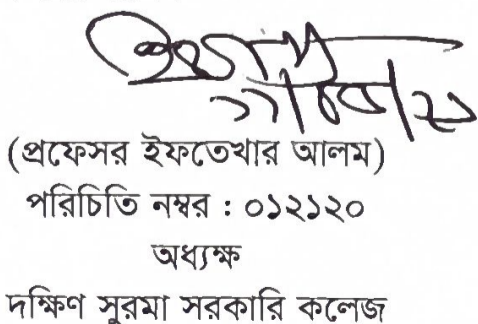 (প্রফেসর ইফতেখার আলম)
পরিচিতি নম্বর : ০১২১২০
অধ্যক্ষ
দক্ষিণ সুরমা সরকারি কলেজ